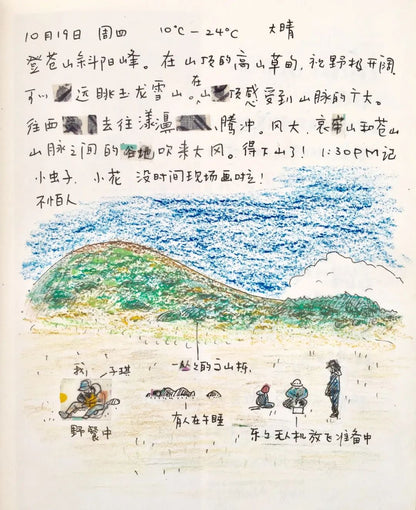 10月19日 周四 10°C－24°C 大晴
登苍山斜阳峰。在山顶的高山草甸，视野极开阔
可以远眺玉龙雪山。在山顶感受到山脉的广大。
往西去往漾濞 腾冲。风大，哀牢山和苍山
山脉之间的谷地吹来大风。得下山了！1:30PM记
小虫子，小花 没时间现场画啦！
不怕人
一丛丛的高山栎
我 子琪
野餐中
有人在午睡
乐与无人机放飞准备中